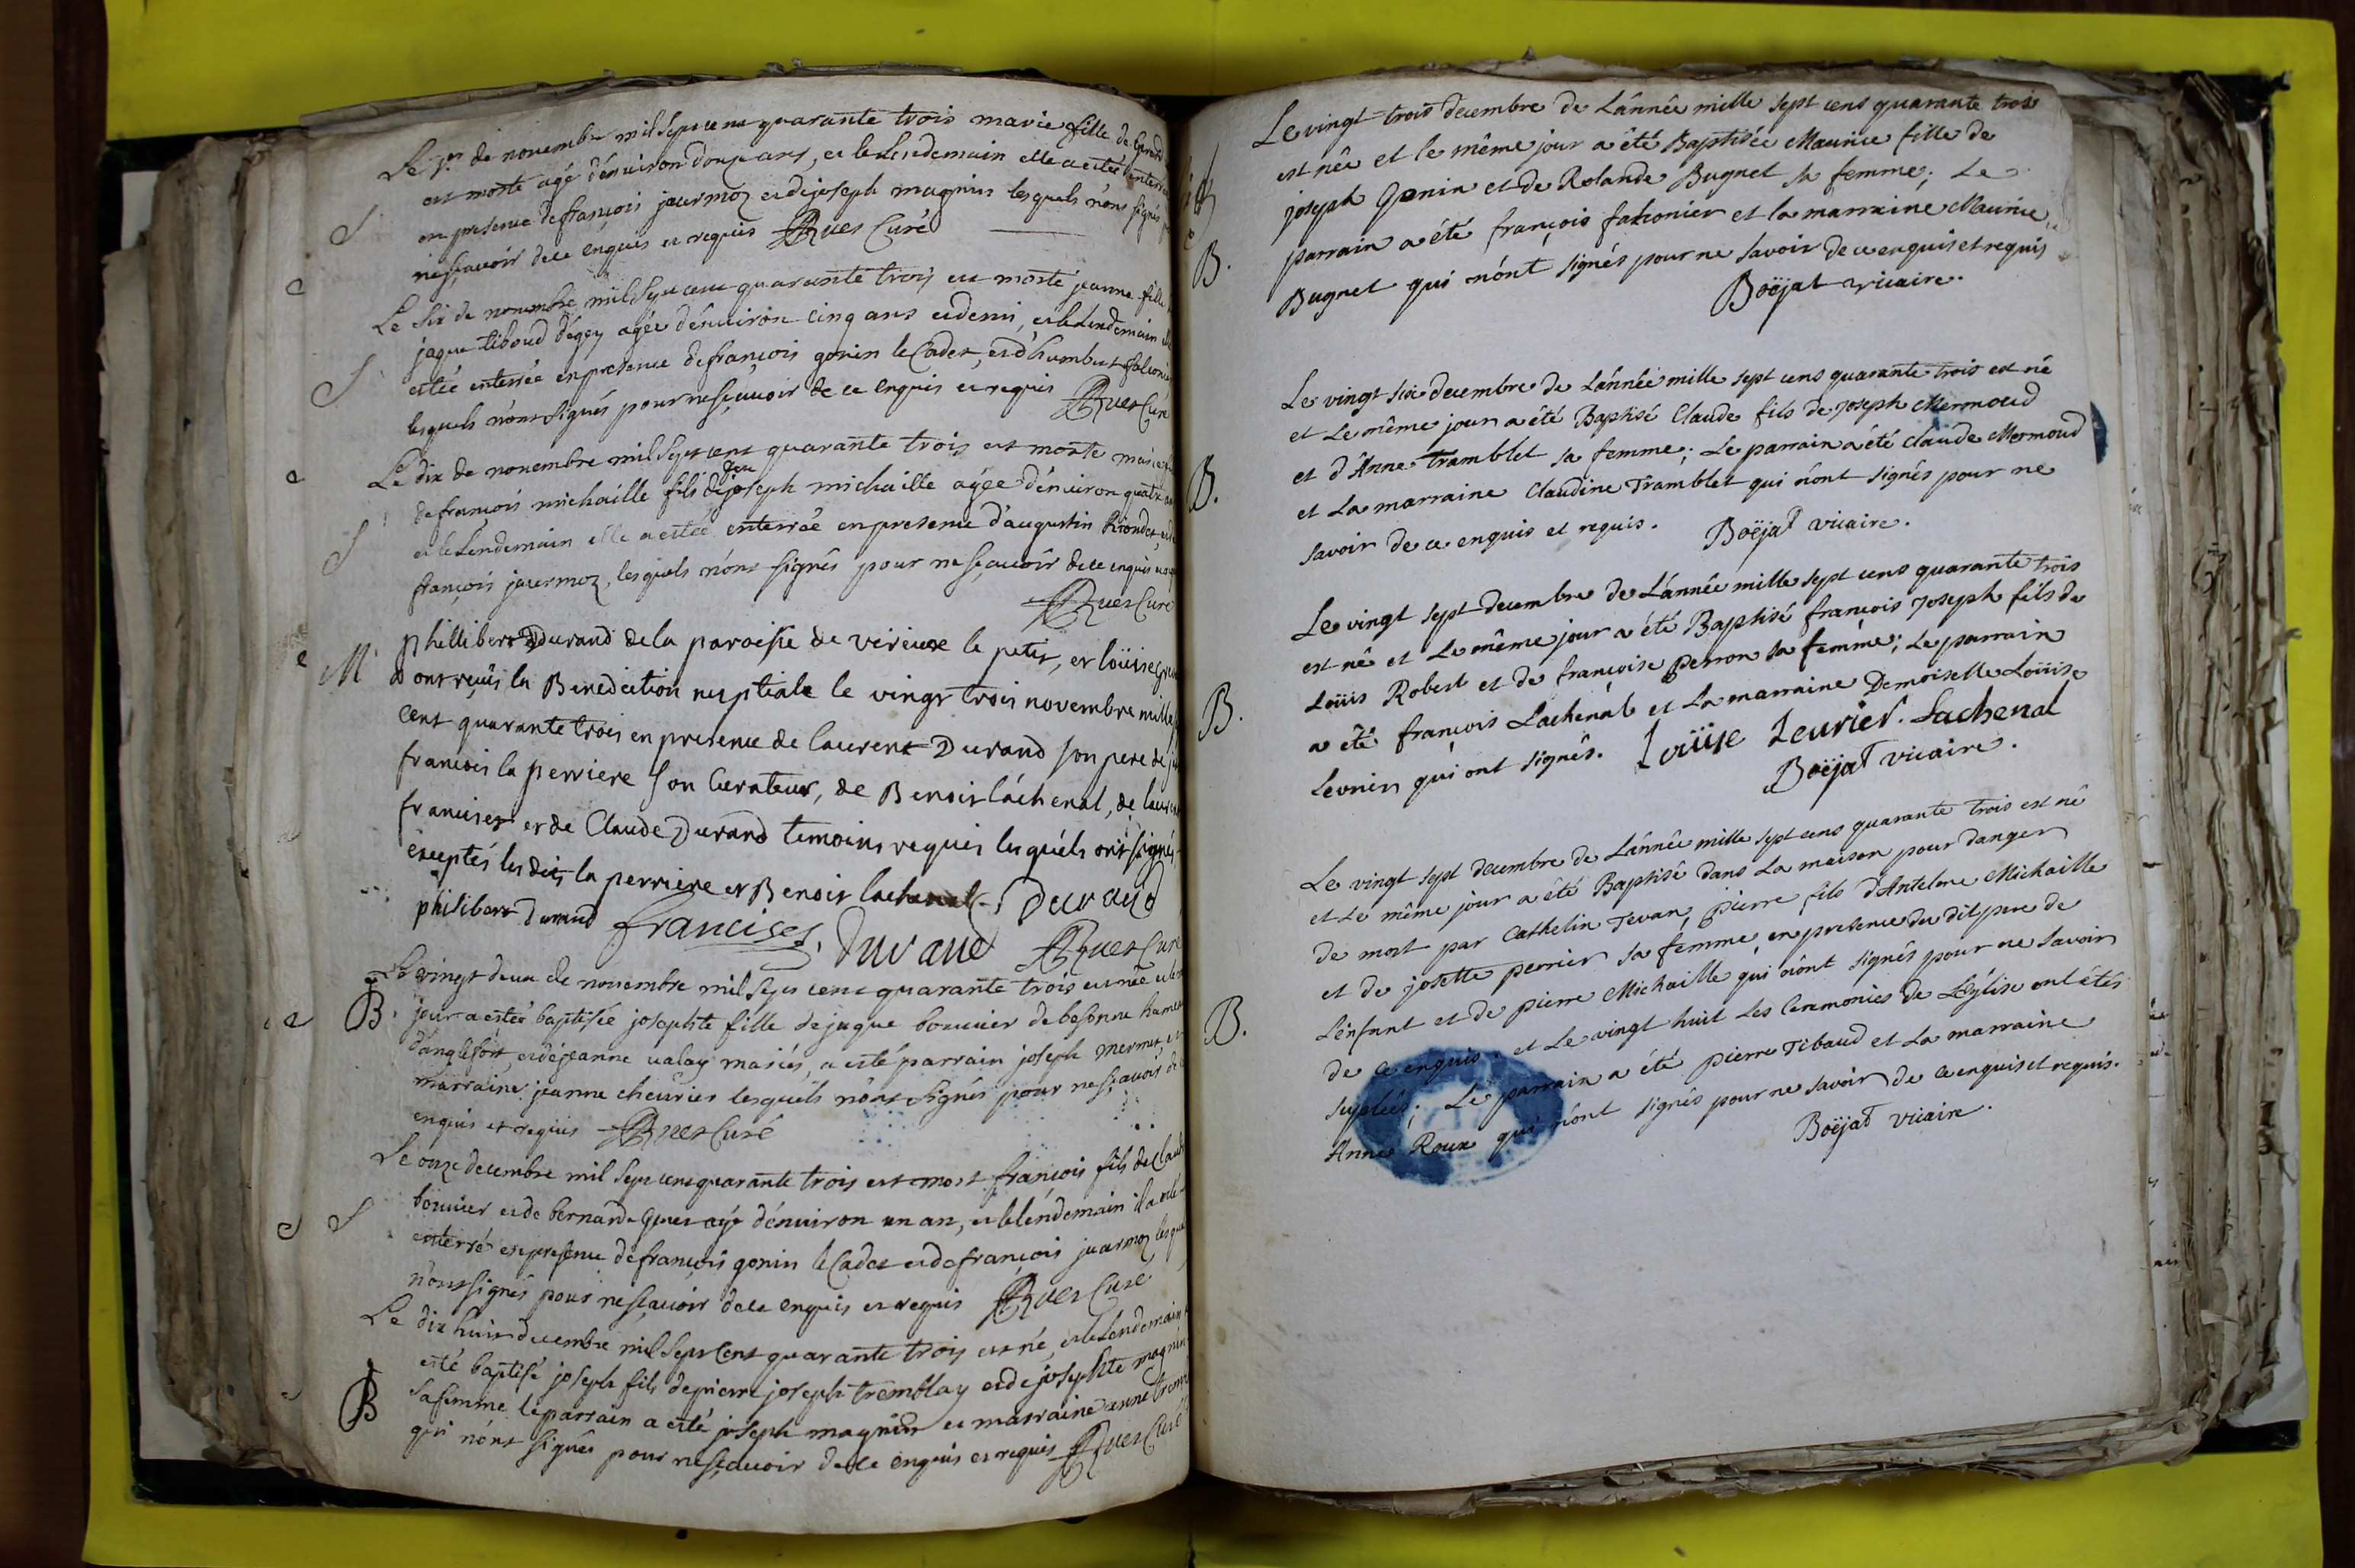 Le 1er de novembre mil sept cent quarante trois marie fille de
est morte agé dénviron douze ans, et le lendemain elle a estée enterrée
en presence de françois jeurmoz et de joseph magnin lesquels nónt signés
nesçavoir dece enquis et requis Ruet Curé
S
Le six de novembre mil sept cent quarante trois est morte jeanne fille
jaque tiboud dégey agée dénviron cinq ans et demi, et le lendemain elle
S
estée enterrée en presence de françois gonin le Cadet, et d'humbert falconier
lesquels nónt signés pour nesçavoir de ce enquis et requis Ruet Curé
Le dix de novembre mil sept cent quarante trois est morte marie
de francois michaille fils de feu joseph michaille agée dénviron quatre ans
S
et le lendemain elle a estée enterrée en presence d'augustin Riondet, et de
françois jeurmoz, lesquels nónt signés pour nesçavoir dece enquis et requis
Ruet Curé
M
phillibert Durand dela paroisse de virieux le petit, et loüise
ont reçûs la Benediction nuptiale le vingt trois novembre mille
cent quarante trois en presence de laurent Durand son pere de
francois la perriere son Curateur, de Benoit láchenal, de laurent
francises et de Claude Durand temoins requis lesquéls ont signés
exceptés lesdits la perriere et Benoit lachenal. Durand
philibert durand francises, Durand Ruet Curé
Le vingt deux de novembre mil sept cent quarante trois est née et le
B.
jour a estée baptisée josephte fille de jaque bouvier de besonne hameau
d'anglefort, et de jeanne valay mariés, a esté parrain joseph mermet et
marraine jeanne chevrier lesquéls nónt signés pour nesçavoir de ce
enquis et requis Ruet Curé
Le onze decembre mil sept cent quarante trois est mort françois fils de Claude
S
bouvier et de bernarde Guet agé dénviron un an, et le lendemain il a esté
enterré en presence de françois gonin le Cadet et de françois jeurmoz lesquels
nónt signés pour nesçavoir dece enquis et requis Ruet Curé
Le dix huit decembre mil sept Cent quarante trois est né, et le lendemain
esté baptisé joseph fils de pierre joseph tremblay et de josephte magnin
B
sa femme le parrain a esté joseph magnin et marraine anne
qui nónt signés pour nesçavoir dece enquis et requis Ruet Curé
Le vingt-trois decembre de L'année mille sept cens quarante trois
est née et le même jour a été Baptisée Maurice fille de
joseph Gonin et de Rolande Bugnet sa femme; Le
B.
parrain a été françois falconier et la marraine Maurice
Bugnet qui n'ont signés pour ne savoir de ce enquis et requis
Boëjat vicaire.
Le vingt six decembre de L'année mille sept cens quarante trois est né
et Le même jour a été Baptisé Claude fils de Joseph Mermoud
B.
et d'Anne Tramblet sa femme; Le parrain a été Claude Mermoud
et La marraine Claudine Tramblet qui n'ont signés pour ne
savoir de ce enquis et requis. Boëjat vicaire.
Le vingt sept decembre de L'année mille sept cens quarante trois
est né et Le même jour a été Baptisé françois Joseph fils de
Loüis Robert et de françoise perron sa femme; Le parrain
B.
a été françois Lachenal et La marraine Demoiselle Loüise
Levrier qui ont signés. Loüise Levrier. Lachenal
Boëjat vicaire.
Le vingt sept decembre de L'année mille sept cens quarante trois est né
et Le même jour a été Baptisé dans La maison pour danger
de mort par Cathelin Tevan, pierre fils d'Antelme Michaille
et de josette perrier sa femme, en presence du dit pere de
B.
L'enfant et de pierre Michaille qui n'ont signés pour ne savoir
de ce enquis. et Le vingt huit Les Ceremonies de L'église ont étés
supléés; Le parrain a été pierre Tibaud et La marraine
Anne Roux qui n'ont signés pour ne savoir de ce enquis et requis.
Boëjat vicaire.